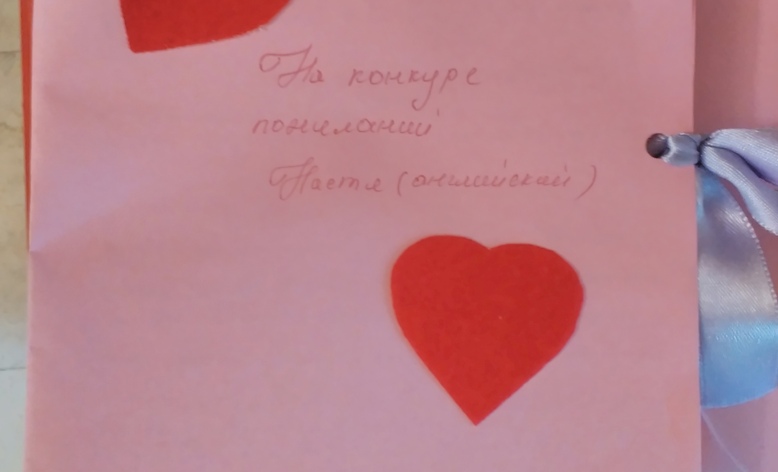 На конкурс
пожеланий
Настя (английский)